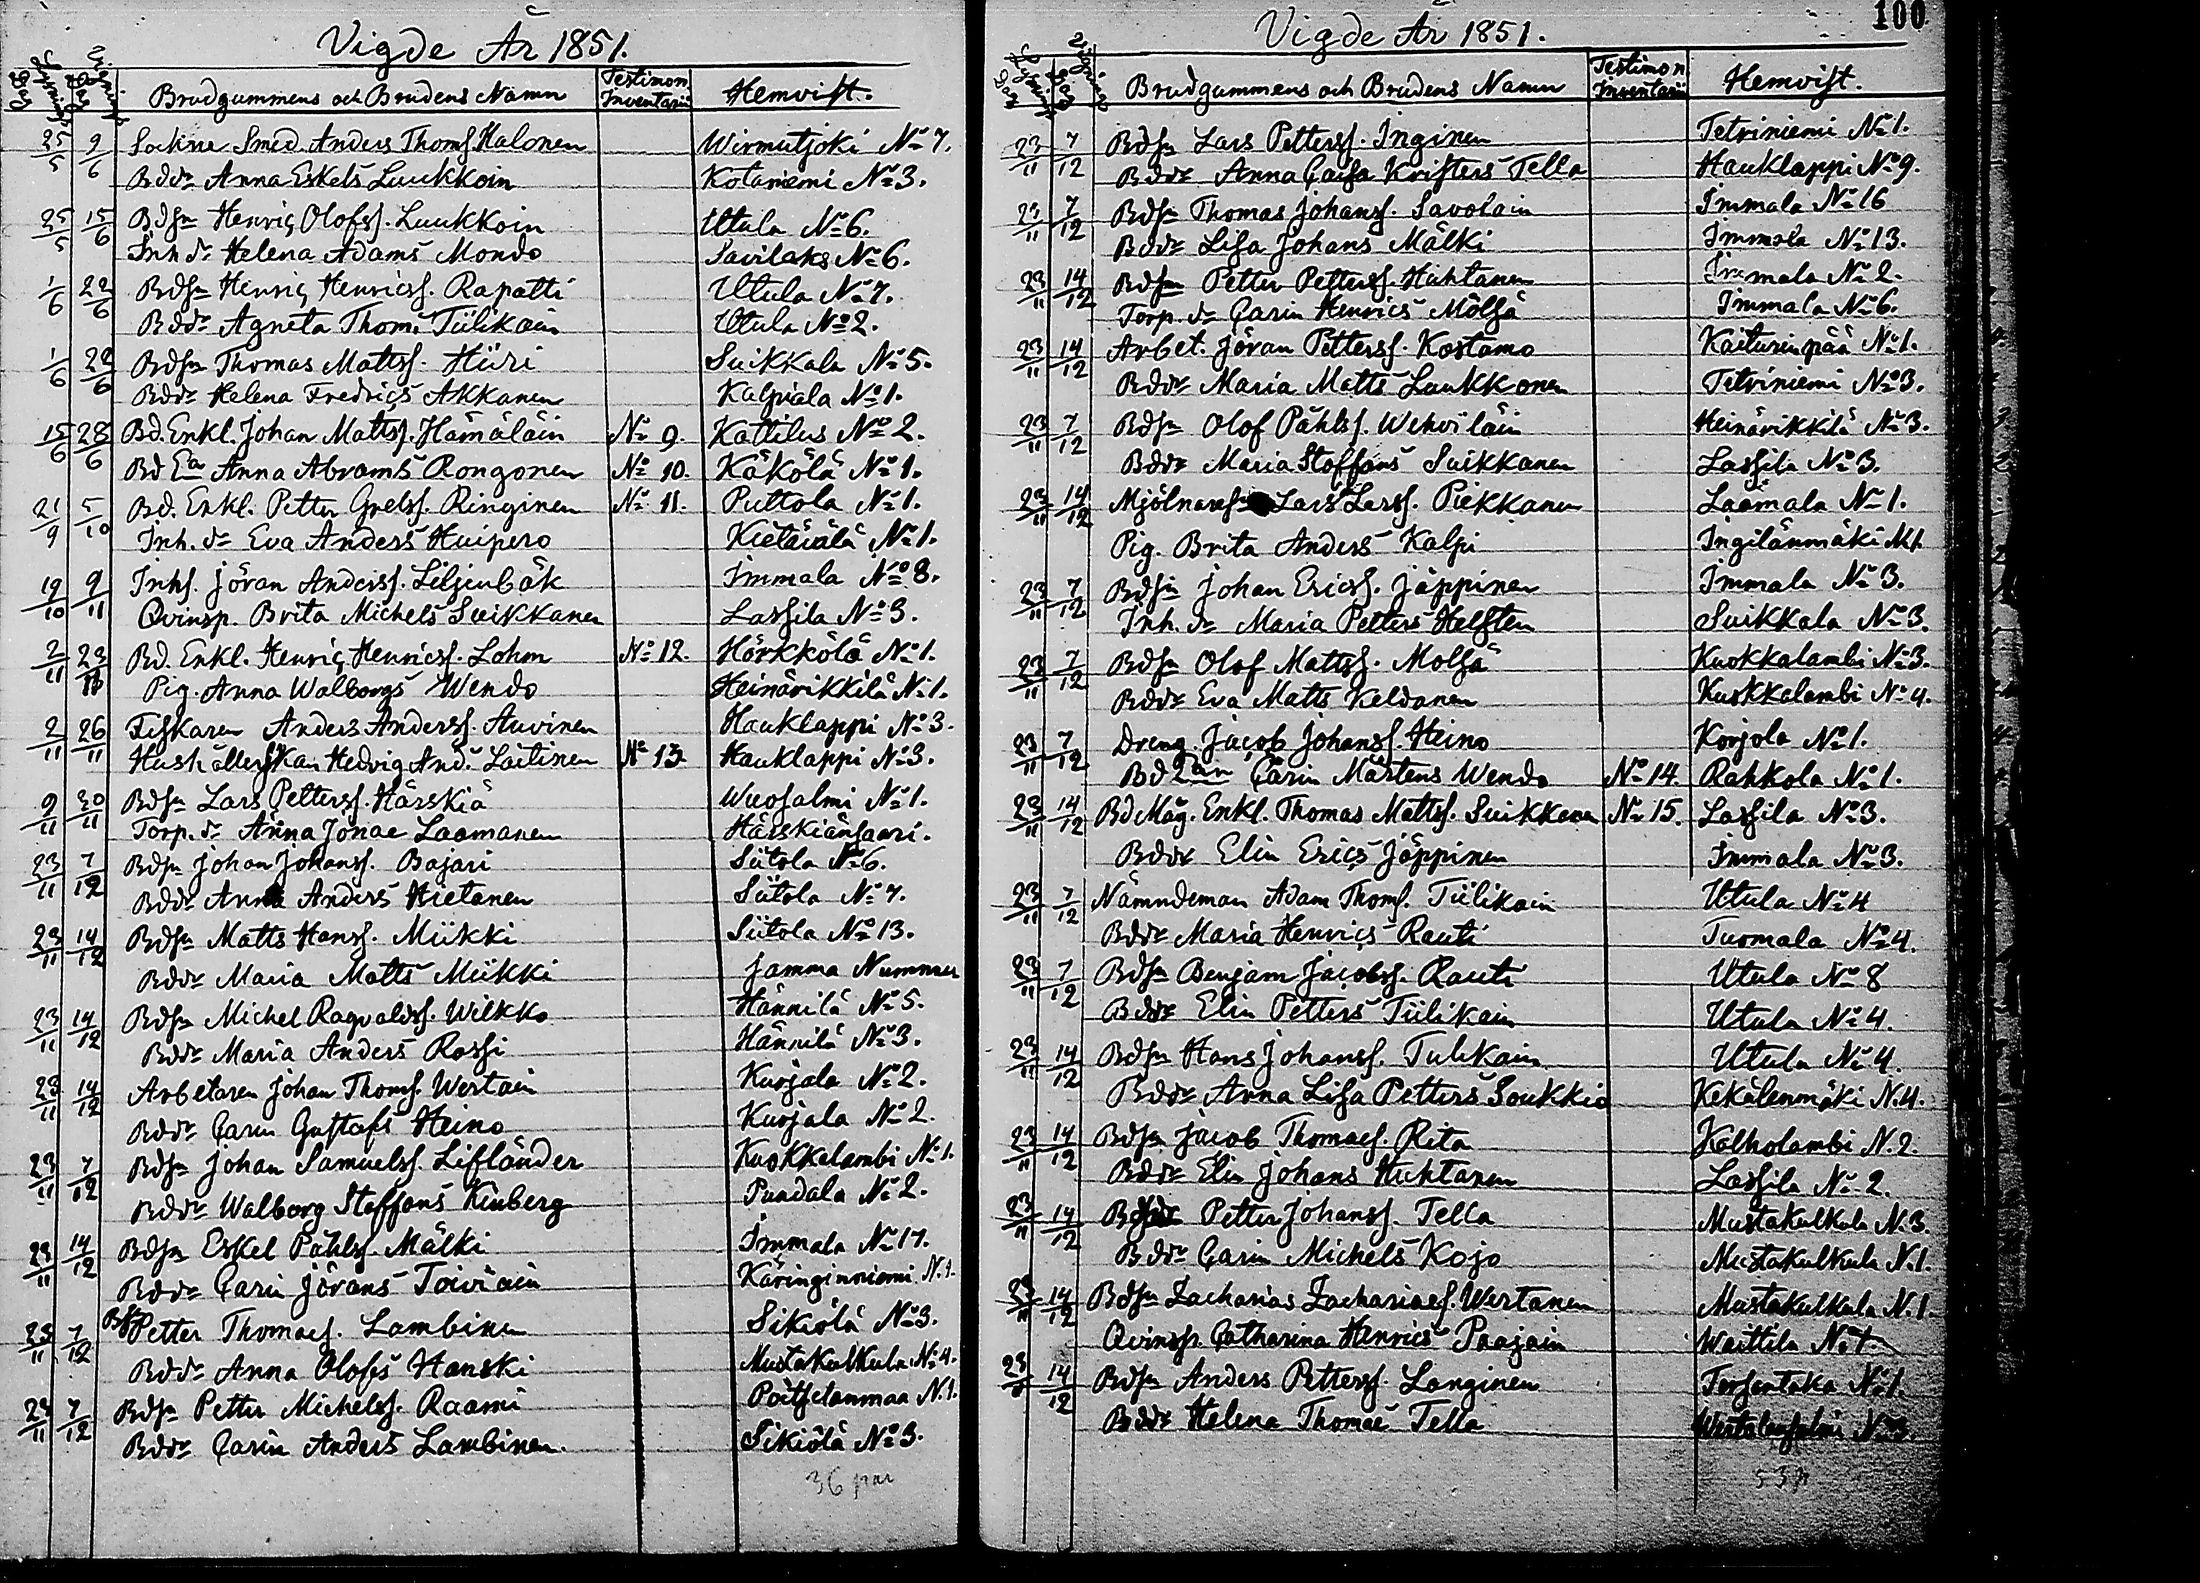 Vigde År 1851.
Lysnings Dag Vignings Dag Brudgummens och Brudens Namn Testimon. Inventarii Hemvist.
25/5 9/6 Sockne Smed. Anders Thomss. Halonen Wirmutjoki No 7.
Bddr Anna Eskels Luukkoin Kotaniemi No 3.
25/5 15/6 Bdsn Henric Olofss. Luukkoin Utula No 6.
Inh dr Helena Adams Mondo Savilaks No 6.
1/6 22/6 Bdsn Henric Henricss. Rapatti Utula No 7.
Bddr Agneta Thom. Tiilikain Utula No 2.
1/6 22/6 Bdsn Thomas Mattss. Hiiri Suikkala No 5.
Bddr Helena Fredrics Akkanen Kalpiala No 1.
15/6 28/6 Bd. Enkl. Johan Mattss. Hämäläin No 9. Kattilus No 2.
Bd Ea Anna Abrams Rongonen No 10. Käkölä No 1.
21/9 5/10 Bd. Enkl. Petter Grelss. Ringinen No 11. Puttola No 1.
Inh. dr Eva Anders Huipero Kietäiälä No 1.
19/10 9/11 Inhs. Jöran Anderss. Liljenbäk Immala No 8.
Qvinsp. Brita Michels Suikkanen Lassila No 3.
2/11 23/11 Bd. Enkl. Henric Henricss. Lohm No 12. Hörkkölä No 1.
Pig. Anna Walborgs Wendo Heinärikkilä N. 1.
2/11 26/11 Fiskaren Anders Anderss. Auvinen Hauklappi No 3.
Hushållerskan Hedvig And. Laitinen No 13. Hauklappi No 3.
9/11 30/11 Bdsn Lars Petterss. Härskiä Wuosalmi No 1.
Torp. dr Anna Jonae Laamanen Härskiänsaari.
23/11 7/12 Bdsn Johan Johanss. Bajari Siitola No 6.
Bddr Anna Anders Hietanen Siitola No 7.
23/11 14/12 Bdsn Matts Hanss. Miikki Siitola No 13.
Bddr Maria Matts Miikki samma Nummer
23/11 14/12 Bdsn Michel Ragvaldss. Wilkko Hännilä No 5.
Bddr Maria Anders Rossi Hännilä No 3.
23/11 14/12 Arbetaren Johan Thomss. Wertain Kurjala No 2.
Bddr Carin Gustafs Heino Kurjala No 2.
23/11 7/12 Bdsn Johan Samuelss. Lifländer Kuokkalambi No 1.
Bddr Walborg Staffans Kinberg Pundala No 2.
23/11 14/12 Bdsn Eskel Påhlss. Mälki Immala No 17.
Bddr Carin Jörans Toiviain Käringinniemi N. 1.
23/11 7/12 Bds Petter Thomaes. Lambinen Sikiölä No 3.
Bddr Anna Olofs Hanski Mustakulkula No 4.
23/11 7/12 Bdsn Petter Michelss. Raami Poitsetanmaa N. 1.
Bddr Carin Anders Lambinen. Sikiölä No 3.
36 par
100
Vigde År 1851.
Lysnings Dag Vignings Dag Brudgummens och Brudens Namn Testimon Inventarii Hemvist.
23/11 7/12 Bdsn Lars Petterss. Inginen Tetriniemi No 1.
Bddr Anna Caisa Kristers Tella Hauklappi No 9.
23/11 7/12 Bdsn Thomas Johanss. Savolain Immala No 16
Bddr Lisa Johans Mälki Immala No 13.
23/11 14/12 Bdsn Petter Petterss. Huhtanen Immala No 2.
Torp. dr Carin Henrics Mölsä Immala No 6.
23/11 14/12 Arbet. Jöran Petterss. Kostamo Kaiturinpää No 1.
Bddr Maria Matts Laukkonen Tetriniemi No 3.
23/11 7/12 Bdsn Olof Påhlss. Wehviläin Heinärikkilä No 3.
Bddr Maria Staffans Suikkanen Lassila No 3.
23/11 14/12 Mjölnaresn Lars Larss. Piekkanen Laamala No 1.
Pig. Brita Anders Kalpi Ingilänmäki N 1.
23/11 7/12 Bdsn Johan Ericss. Jäppinen Immala No 3.
Inh. dr Maria Petters Helsten Suikkala No 3.
23/11 7/12 Bdsn Olof Mattss. Molsä Kuokkalambi No 3.
Bddr Eva Matts Keldanen Kuokkalambi No 4.
23/11 7/12 Dreng. Jacob Johanss. Heino Korjola No 1.
Bd Ean Carin Mårtens Wendo No 14. Rahkola No 1.
23/11 14/12 Bd Måg. Enkl. Thomas Mattss. Suikkanen No 15. Lassila No 3.
Bddr Elin Erics Jäppinen Immala No 3.
23/11 7/12 Nämndeman Adam Thoms. Tiilikain Utula No 4
Bddr Maria Henrics Rauti Tuomala No 4.
23/11 7/12 Bdsn Benjam Jacobss. Rauti Utula No 8
Bddr Elin Petters Tiilikain Utula No 4.
23/11 14/12 Bdsn Hans Johanss. Tulikain Utula No 4.
Bddr Anna Lisa Petters Soukkio Kekälenmäki N. 4.
23/11 14/12 Bdsn Jacob Thomaes. Rita Kalholambi N. 2.
Bddr Elin Johans Huhtanen Lassila No 2.
23/11 14/12 Petter Johanss. Tella Mustakulkula N. 3.
Bddr Carin Michels Kojo Mustakulkula N. 1.
23/11 14/12 Bdsn Zacharias Zachariaes. Wertanen Mustakulkula N. 1.
Qvinsp. Catharina Henrics Paajain Waittila No 1.
23/11 14/12 Bdsn Anders Petterss. Langinen Torsentaka No 1.
Bddr Helena Thomae Tella
53